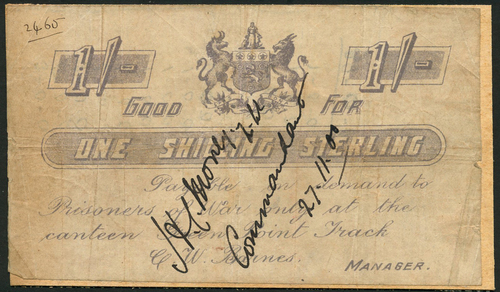 2465
1/- 1/-
GOOD FOR
ONE SHILLING STERLING
Payable on demand to
Prisoners of War only at the
canteen Green Point Track
C. W. Barnes.
MANAGER.
Commandant
27.11.00